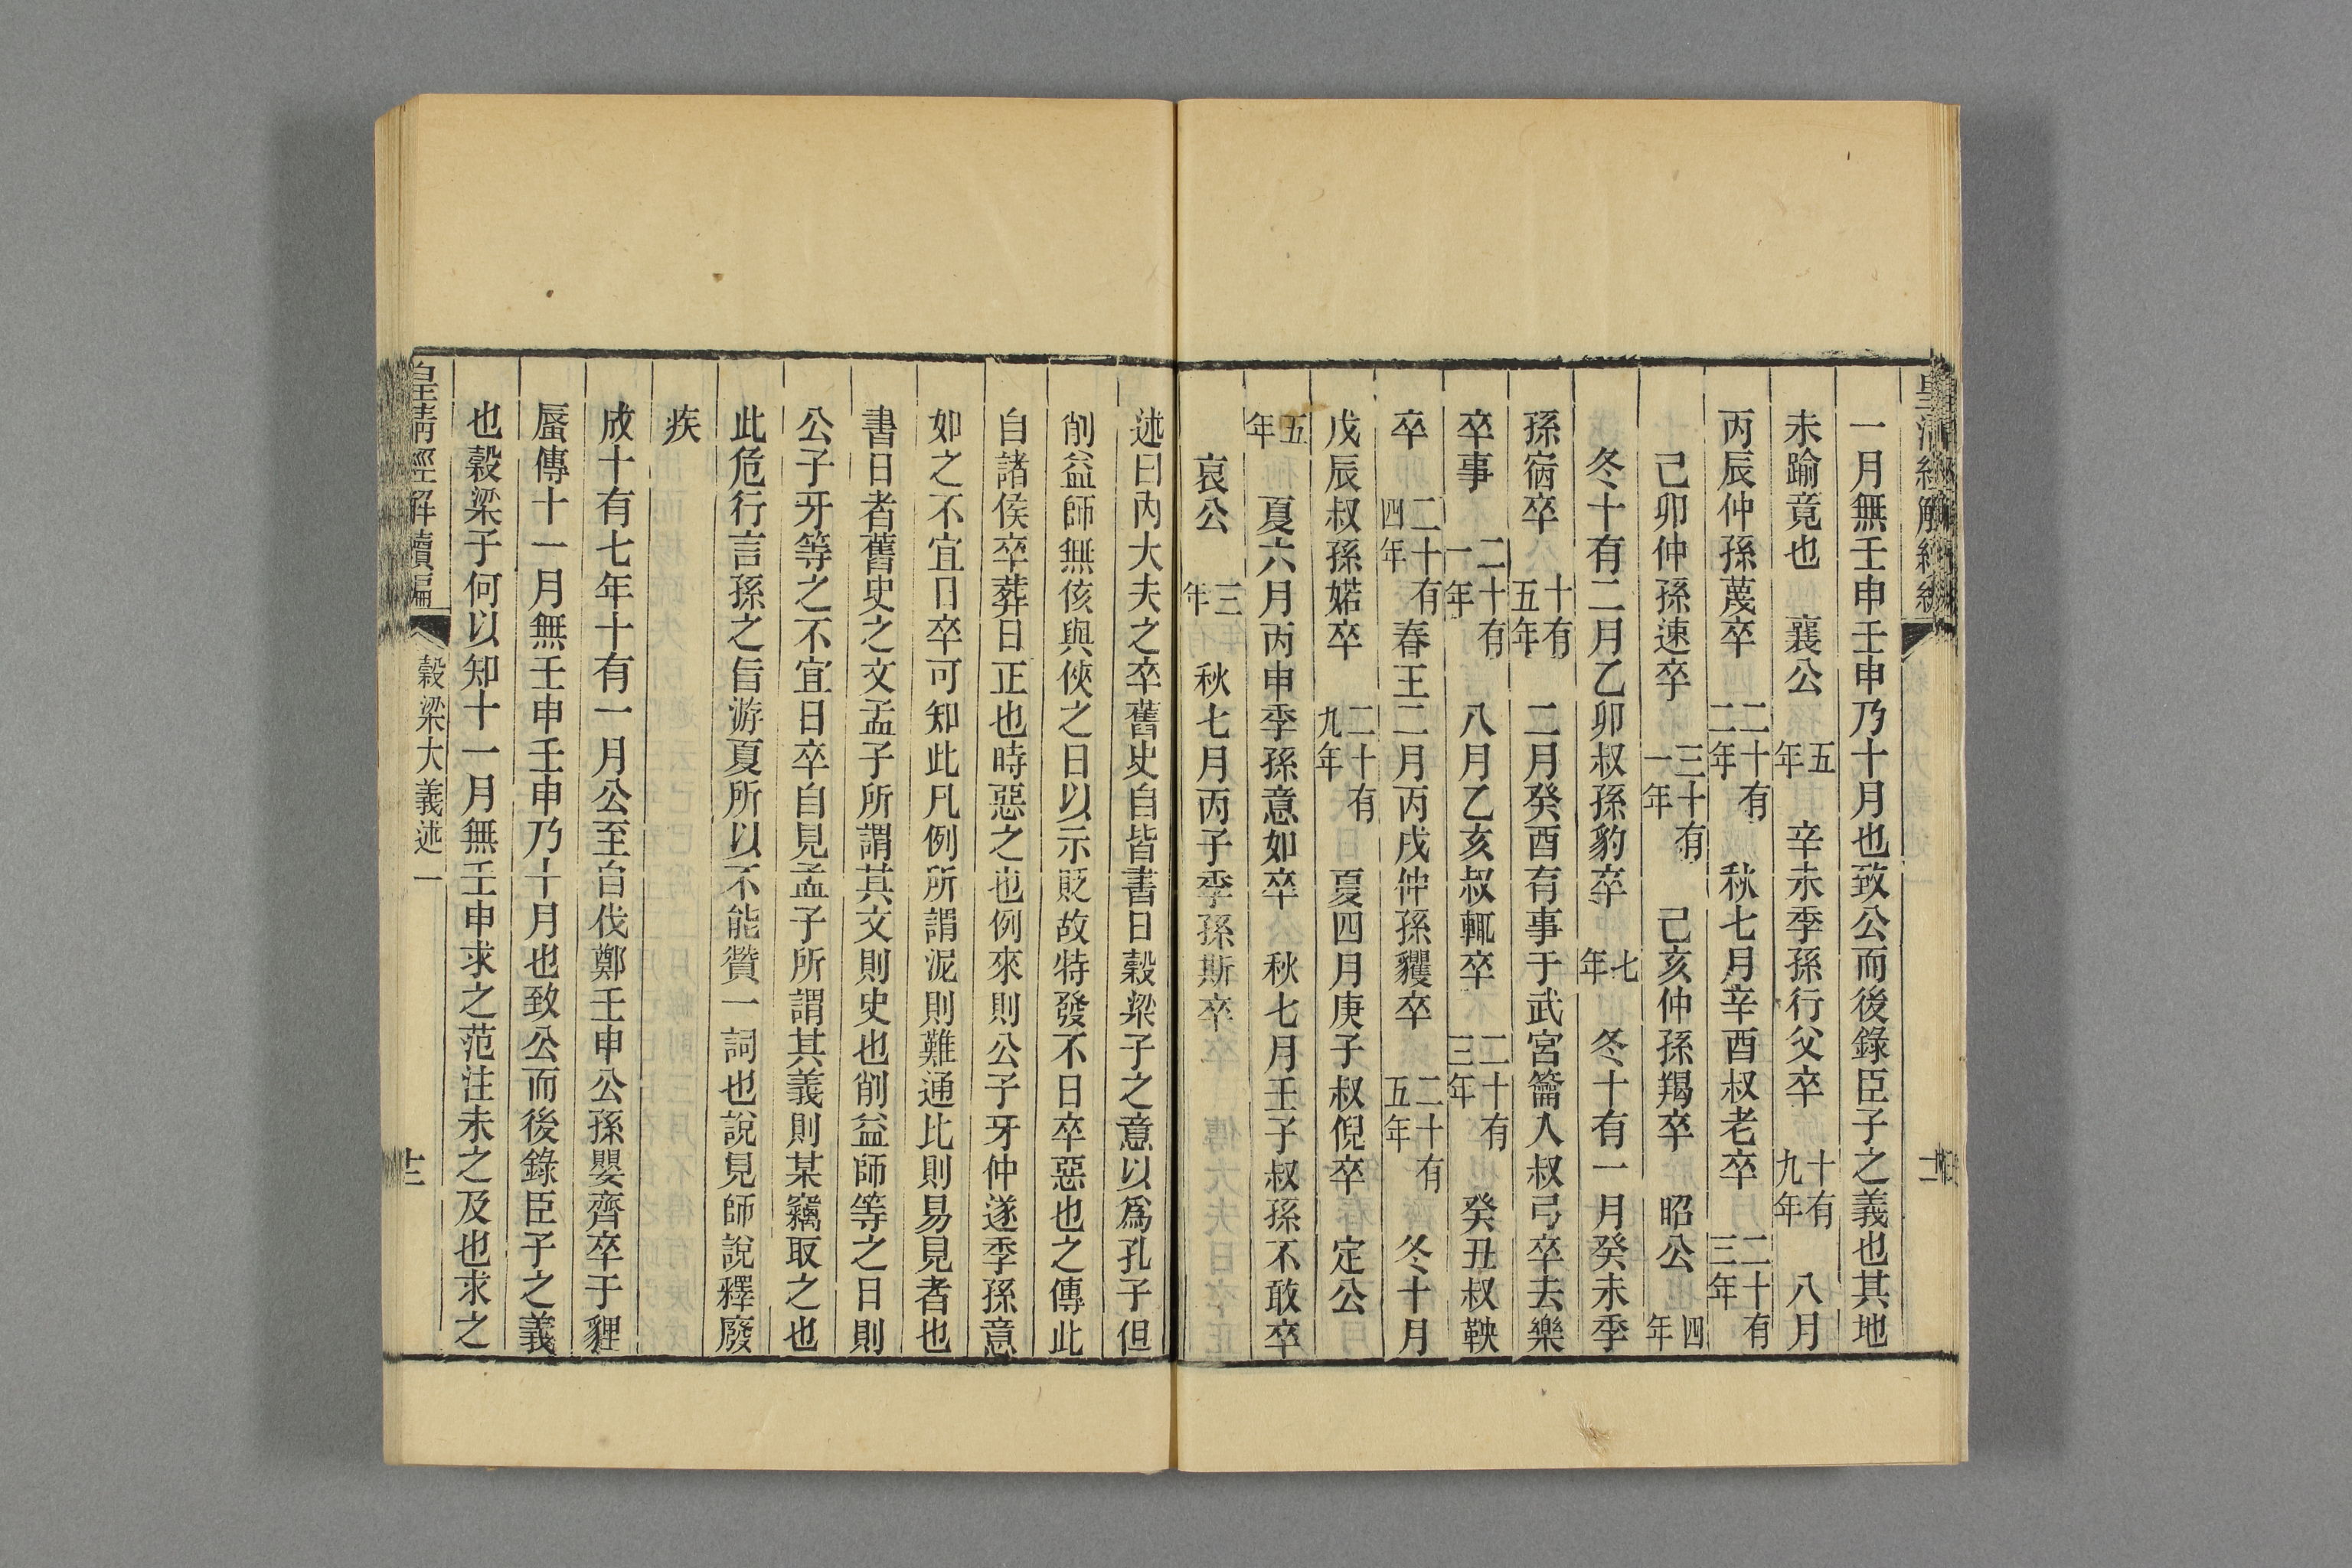 一月無壬申壬申乃十月也致公而後錄臣子之義也其地
未踰竟也　襄公五年　辛未季孫行父卒十有九年　八月
丙辰仲孫蔑卒二十有二年　秋七月辛酉叔老卒二十有三年
己卯仲孫速卒三十有一年　己亥仲孫羯卒　昭公四年
冬十有二月乙卯叔孫豹卒七年　冬十有一月癸未季
孫宿卒十有五年　二月癸酉有事于武宮籥入叔弓卒去樂
卒事二十有一年　八月乙亥叔輒卒二十有三年　癸丑叔鞅
卒二十有四年　春王二月丙戌仲孫貜卒二十有五年　冬十月
戊辰叔孫婼卒二十有九年　夏四月庚子叔倪卒　定公
五年　夏六月丙申季孫意如卒　秋七月壬子叔孫不敢卒
哀公三年　秋七月丙子季孫斯卒
述曰內大夫之卒舊史自皆書日穀梁子之意以爲孔子但
削益師無侅與俠之日以示貶故特發不日卒惡也之傳此
自諸侯卒葬日正也時惡之也例來則公子牙仲遂季孫意
如之不宜日卒可知此凡例所謂泥則難通比則易見者也
書日者舊史之文孟子所謂其文則史也削益師等之日則
公子牙等之不宜日卒自見孟子所謂其義則某竊取之也
此危行言孫之旨游夏所以不能贊一詞也說見師說釋廢
疾
成十有七年十有一月公至自伐鄭壬申公孫嬰齊卒于貍
蜃傳十一月無壬申壬申乃十月也致公而後錄臣子之義
也穀梁子何以知十一月無壬申求之范注未之及也求之
皇清經解續編　穀梁大義述一